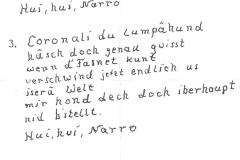 Hui, hui, Narro
3. Coronali du Lumpähund
häsch doch genau gwisst
wenn d'Fasnet kunt
verschwind jetzt endlich us
iserä Welt
mir hond dech doch iberhaupt
nid bstellt.
Hui, hui, Narro